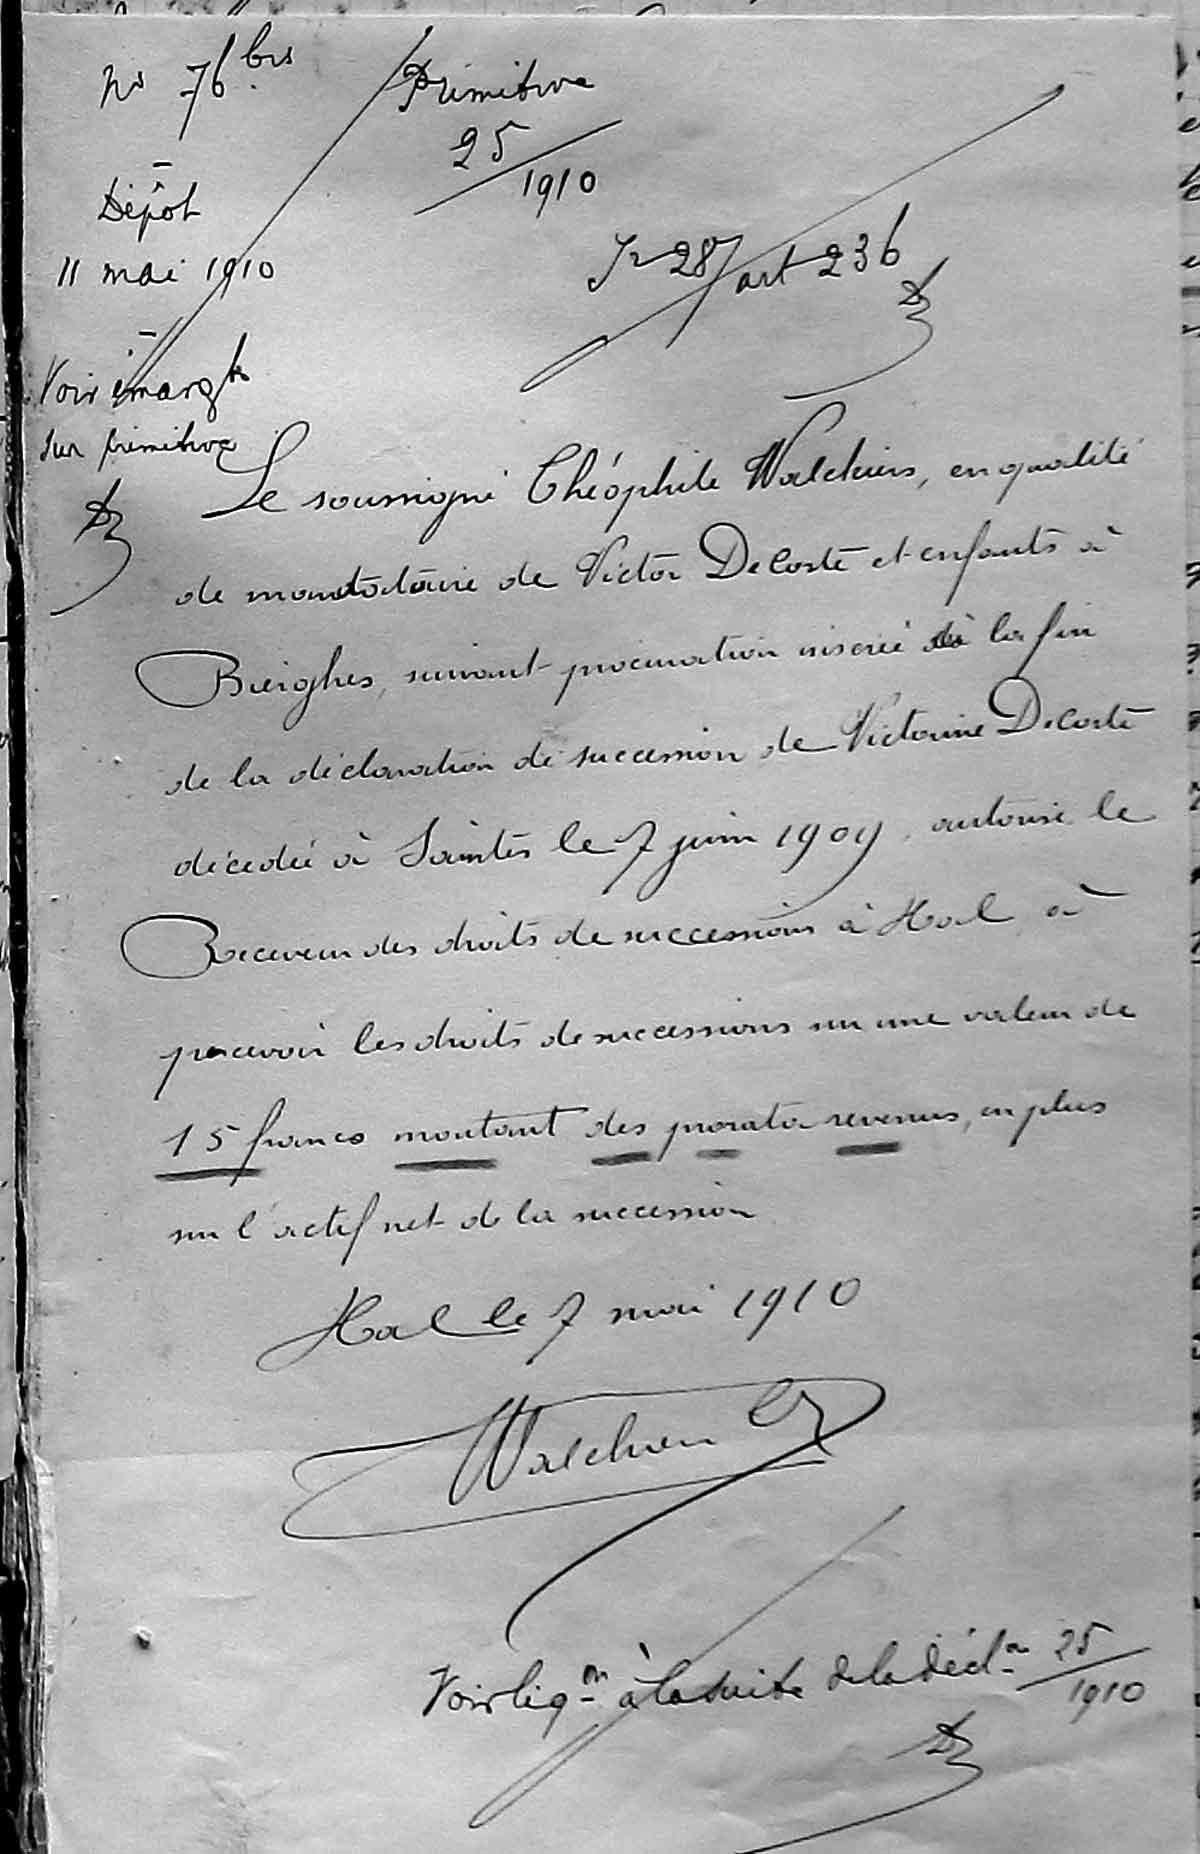 No 76 bis
Primitive
25/1910
Dépôt
11 mai 1910
28 art 236
Voir émargt
sur primitive
Le soussigné Théophile Walckiers, en qualité
de mandataire de Victor Decoste et enfants à
Bierghes, suivant procuration inscrite à la fin
de la déclaration de succession de Victorine Decoste
décédée à Saintes le 7 juin 1909, autorise le
Receveur des droits de successions à Hal, à
percevoir les droits de successions sur une valeur de
15 francs montant des prorata revenus, en plus
sur l'actif net de la succession
Hal le 7 mai 1910
Walckiers
Voir liqon à la suite de la décln 25/1910